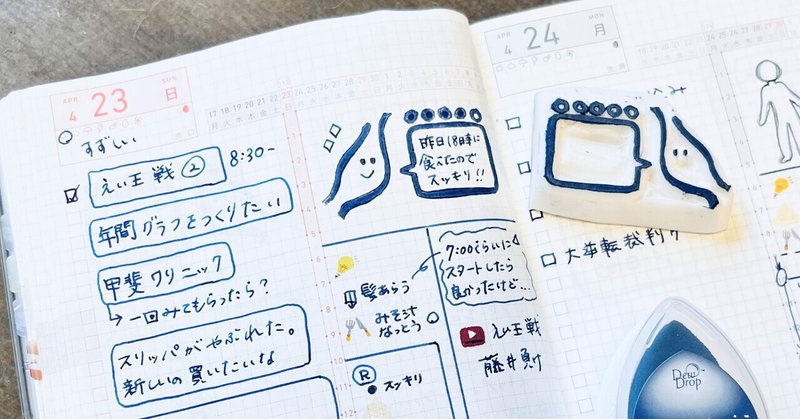 APR
4
23
SUN
日
すずしい
17 18 19 20 21 22 23 24 25 26 27 28 29 30
月 火 水 木 金 土 日
えい王戦② 8:30-
年間グラフをつくりたい
甲斐クリニック
→一回みてもらったら?
スリッパがやぶれた。
新しいの買いたいな
昨日18時に
食べたので
スッキリ!!
髪あらう
みそ汁
なっとう
R
スッキリ
7:00くらいに
スタートしたら
良かったけど…
えい王戦
藤井負け
APR
4
24
MON
月
大逆転裁判
Dew
Drop